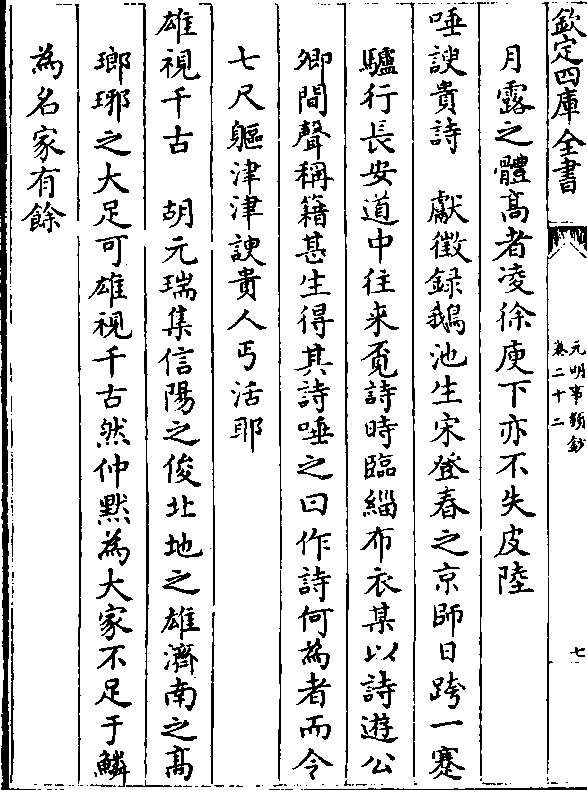 欽定四庫全書
元明事類鈔
卷二十二
七
月露之體高者凌徐庾下亦不失皮陸
唾諛貴詩　獻徵録鵝池生宋登春之京師日跨一蹇
驢行長安道中往来覓詩時臨緇布衣某以詩遊公
卿間聲稱籍甚生得其詩唾之曰作詩何為者而令
七尺軀津津諛貴人丐活耶
雄視千古　胡元瑞集信陽之俊北地之雄濟南之髙
瑯琊之大足可雄視千古然仲黙為大家不足于鱗
為名家有餘